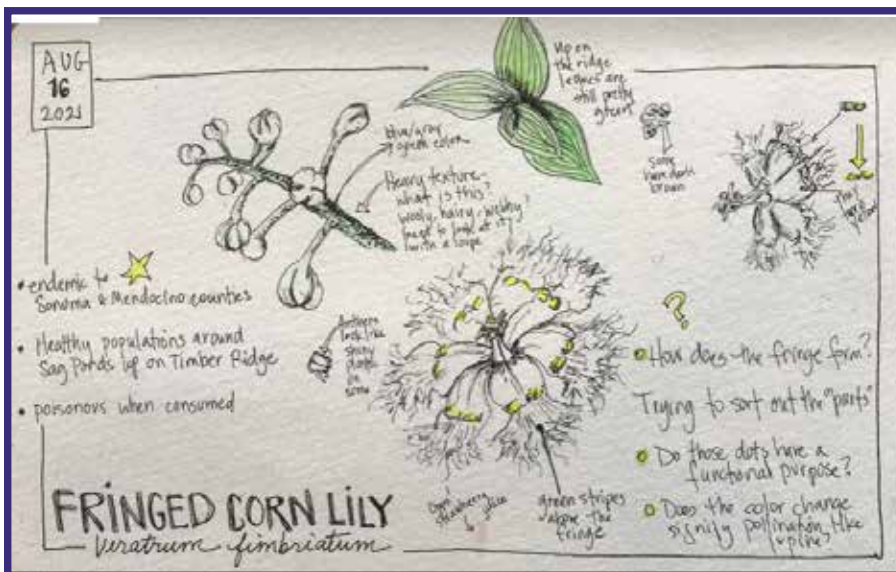 AUG
16
2021
Up on
the ridge
leaves are
still pretty
green
blue/gray
green color
Heavy texture-
what is this?
wooly, hairy, webby?
need to look at it
with a loupe
some
have dark
brown
• endemic to
Sonoma & Mendocino counties
• Healthy populations around
Sag Ponds up on Timber Ridge
• poisonous when consumed
Anthers
look like
on some
?
How does the fringe form?
Trying to sort out the "parts"
Do those dots have a
functional purpose?
Does the color change
signify pollination like
lupine?
green stripes
above the
fringe
FRINGED CORN LILY
Veratrum fimbriatum